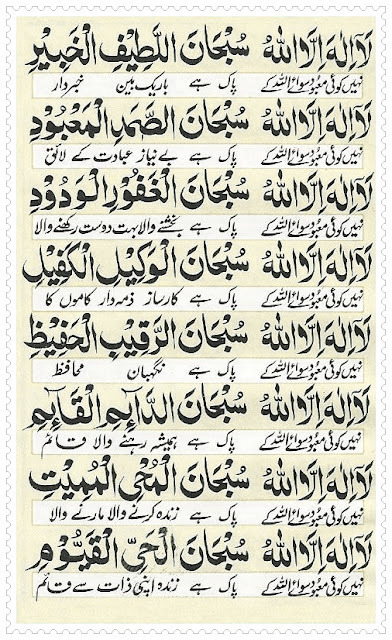 لَآ اِلٰهَ اِلَّا اللهُ سُبْحَانَ اللَّطِيْفِ الْخَبِيْرِ
نہیں کوئی معبود سوائے اللہ کے پاک ہے باریک بین خبردار
لَآ اِلٰهَ اِلَّا اللهُ سُبْحَانَ الصَّمَدِ الْمَعْبُوْدِ
نہیں کوئی معبود سوائے اللہ کے پاک ہے بے نیاز عبادت کے لائق
لَآ اِلٰهَ اِلَّا اللهُ سُبْحَانَ الْغَفُوْرِ الْوَدُوْدِ
نہیں کوئی معبود سوائے اللہ کے پاک ہے بخشنے والا بہت دوست رکھنے والا
لَآ اِلٰهَ اِلَّا اللهُ سُبْحَانَ الْوَكِيْلِ الْكَفِيْلِ
نہیں کوئی معبود سوائے اللہ کے پاک ہے کارساز ذمہ دار کاموں کا
لَآ اِلٰهَ اِلَّا اللهُ سُبْحَانَ الرَّقِيْبِ الْحَفِيْظِ
نہیں کوئی معبود سوائے اللہ کے پاک ہے نگہبان محافظ
لَآ اِلٰهَ اِلَّا اللهُ سُبْحَانَ الدَّآئِمِ الْقَآئِمِ
نہیں کوئی معبود سوائے اللہ کے پاک ہے ہمیشہ رہنے والا قائم
لَآ اِلٰهَ اِلَّا اللهُ سُبْحَانَ الْمُحْيِ الْمُمِيْتِ
نہیں کوئی معبود سوائے اللہ کے پاک ہے زندہ کرنے والا مارنے والا
لَآ اِلٰهَ اِلَّا اللهُ سُبْحَانَ الْحَيِّ الْقَيُّوْمِ
نہیں کوئی معبود سوائے اللہ کے پاک ہے زندہ اپنی ذات سے قائم